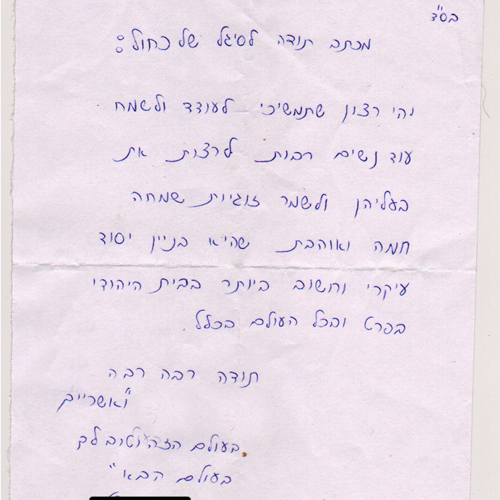 בס"ד
מכתב תודה לסיגל של כחול:
יהי רצון שתמשיכי לעודד ולשמח
עוד נשים רבות לרצות את
בעליהן ולשמר זוגיות שמחה
חמה ואוהבת שהיא בניין יסוד
עיקרי וחשוב ביותר בבית היהודי
בפרט ובכל העולם בכלל.
תודה רבה רבה
"ואשרייך
בעולם הזה וטוב לך
בעולם הבא"